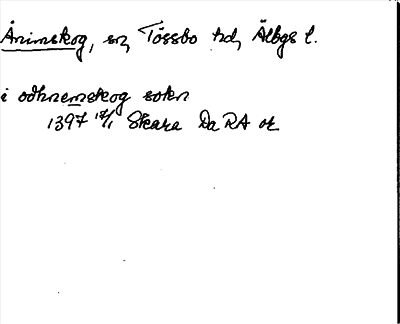 Ånimskog, sn, Tössbo hd, Älbgs l.
i odhnemskog sokn
1397 17/1 Skara Da RA or